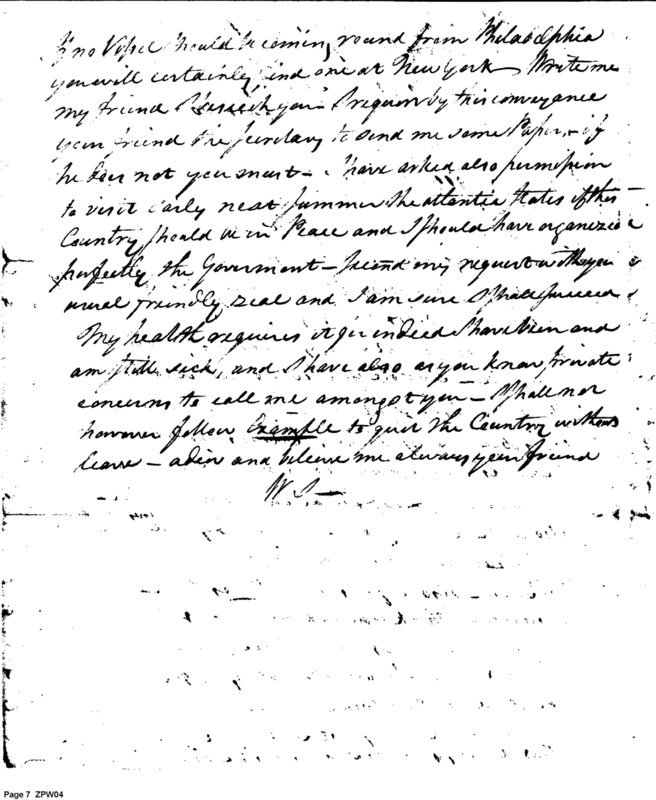 If no Vessel should be coming round from Philadelphia
you will certainly find one at New York — Write me
my friend I beseech you — I require by this conveyance
your friend the Secretary to send me some Paper, & if
he does not you must — I have asked also permission
to visit early next summer the atlantic States if this
Country should be in Peace and I should have organized
perfectly the Goverment — Second my request with your
usual friendly zeal and I am sure I shall succeed
My health requires it for indeed I have been and
am still sick, and I have also as you know private
concerns to call me amongst you — I shall not
however follow Example to quit the Country without
leave — adieu and believe me always your friend
W S —
Page 7 ZPW04